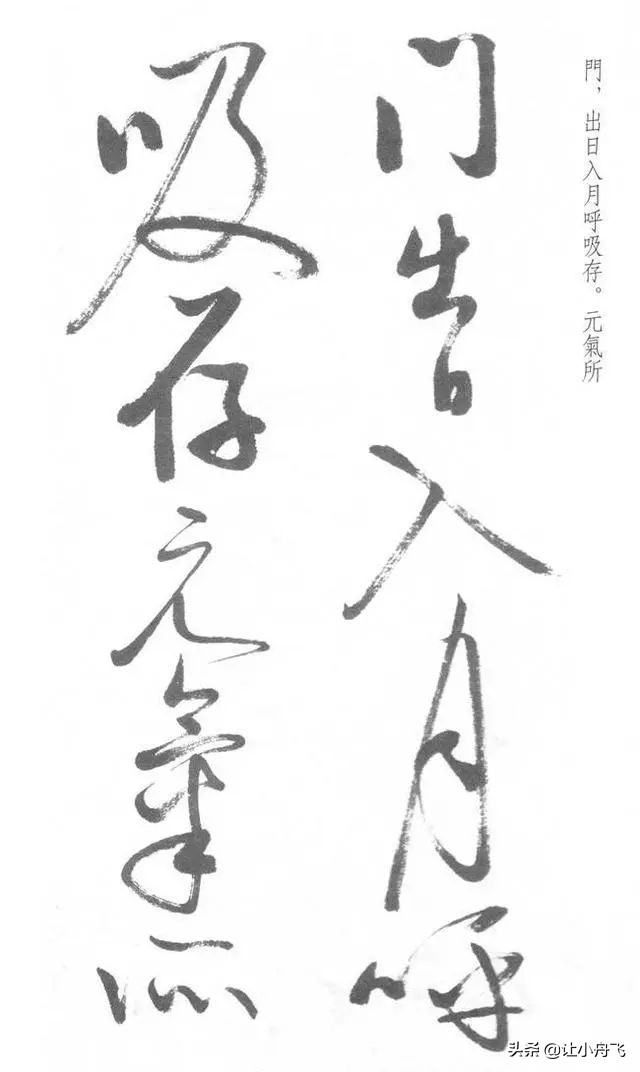 門，出日入月呼吸存。元氣所
门出日入月呼
吸存元氣所
头条 @让小舟飞